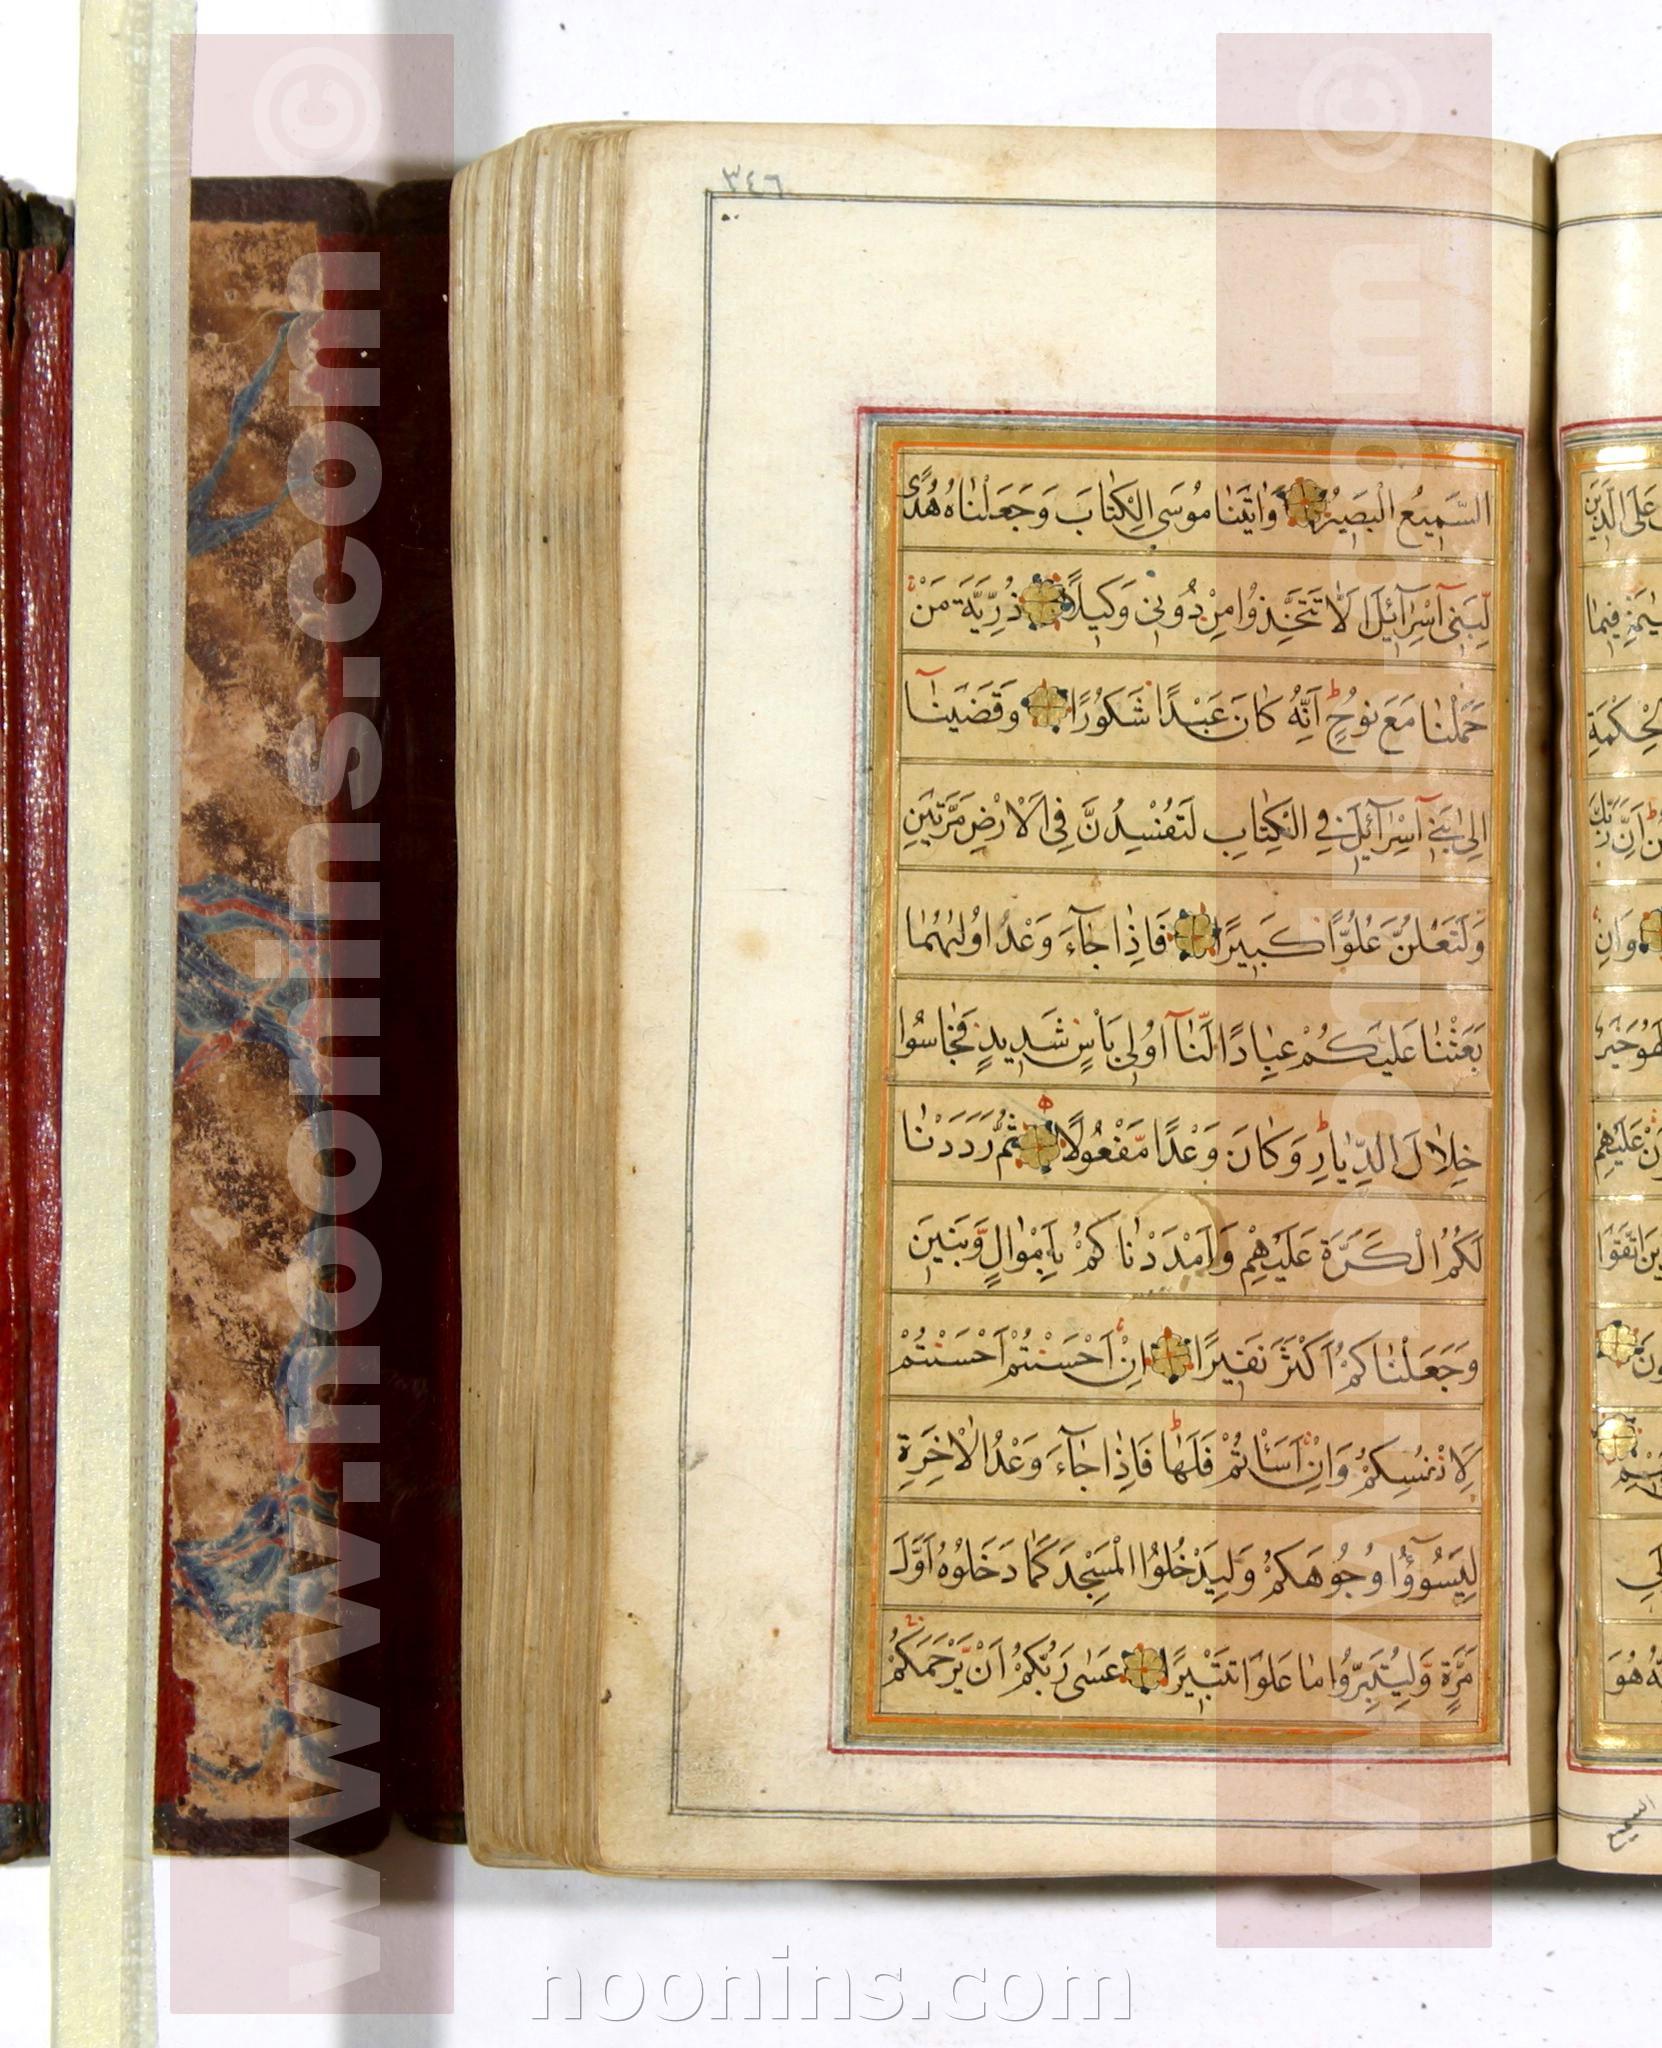 ٣٤٦
السَّمِيعُ الْبَصِيرُ وَاٰتَيْنَا مُوسَى الْكِتَابَ وَجَعَلْنَاهُ هُدًى
لِبَنِىٓ اِسْرَآئِلَ اَلَّا تَتَّخِذُوا مِنْ دُونِى وَكِيلًا ذُرِّيَّةَ مَنْ
حَمَلْنَا مَعَ نُوحٍ ط اِنَّهُ كَانَ عَبْدًا شَكُورًا وَقَضَيْنَآ
اِلٰى بَنِىٓ اِسْرَآئِلَ فِى الْكِتَابِ لَتُفْسِدُنَّ فِى الْاَرْضِ مَرَّتَيْنِ
وَلَتَعْلُنَّ عُلُوًّا كَبِيرًا فَاِذَا جَآءَ وَعْدُ اُولٰىهُمَا
بَعَثْنَا عَلَيْكُمْ عِبَادًا لَنَآ اُولِى بَاْسٍ شَدِيدٍ فَجَاسُوا
خِلَالَ الدِّيَارِ ط وَكَانَ وَعْدًا مَفْعُولًا ثُمَّ رَدَدْنَا
لَكُمُ الْكَرَّةَ عَلَيْهِمْ وَاَمْدَدْنَاكُمْ بِاَمْوَالٍ وَبَنِينَ
وَجَعَلْنَاكُمْ اَكْثَرَ نَفِيرًا اِنْ اَحْسَنْتُمْ اَحْسَنْتُمْ
لِاَنْفُسِكُمْ وَاِنْ اَسَاْتُمْ فَلَهَا ط فَاِذَا جَآءَ وَعْدُ الْاٰخِرَةِ
لِيَسُوٓؤُا وُجُوهَكُمْ وَلِيَدْخُلُوا الْمَسْجِدَ كَمَا دَخَلُوهُ اَوَّلَ
مَرَّةٍ وَلِيُتَبِّرُوا مَا عَلَوْا تَتْبِيرًا عَسٰى رَبُّكُمْ اَنْ يَرْحَمَكُمْ
السميع
www.noonins.com ©
www.noonins.com ©
noonins.com